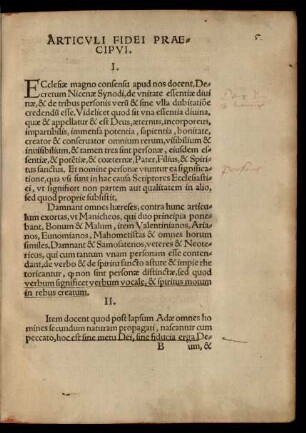 ARTICVLI FIDEI PRAE-
CIPVI.
I.
ECclesiæ magno consensu apud nos docent, De-
cretum Nicenæ Synodi, de vnitate essentiæ diui
næ, & de tribus personis verũ & sine vlla dubitatiõe
credendũ esse. Videlicet quod sit vna essentia diuina,
quæ & appellatur & est Deus, æternus, incorporeus,
impartibilis, immensa potentia, sapientia, bonitate,
creator & conseruator omnium rerum, visibilium &
inuisibilium, & tamen tres sint personæ, eiusdem es-
sentiæ, & potẽtiæ, & coæternæ, Pater, Filius, & Spiri-
tus sanctus. Et nomine personæ vtuntur ea significa-
tione, qua vsi sunt in hac causa Scriptores Ecclesiasti-
ci, vt significet non partem aut qualitatem in alio,
sed quod proprie subsistit.
Damnant omnes hæreses, contra hunc articu-
lum exortas, vt Manicheos, qui duo principia pone-
bant, Bonum & Malum, item Valentinianos, Aria-
nos, Eunomianos, Mahometistas & omnes horum
similes, Damnant & Samosatenos, veteres & Neote-
ricos, qui cum tantum vnam personam esse conten-
dant, de verbo & de spiritu sancto astute & impie rhe
toricantur, ꝙ non sint personæ distinctæ, sed quod
verbum significet verbum vocale, & spiritus motum
in rebus creatum.
II.
Item docent quod post lapsum Adæ omnes ho
mines secundum naturam propagati, nascantur cum
peccato, hoc est sine metu Dei, sine fiducia erga De-
B um, &